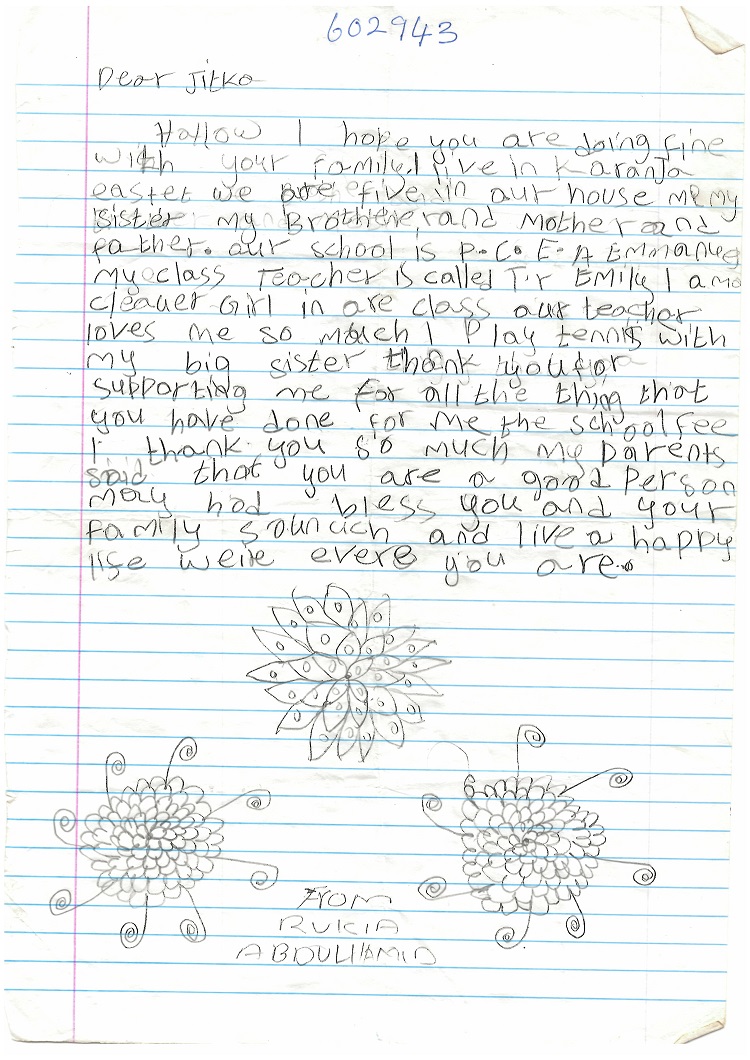 602943
Dear Jitka
Hallow I hope you are doing fine
with your family. I live in Karanja
easter we are five in our house me my
sister my Brothere, and Mother and
father. our school is P.C.E.A Emmanue
my class Teacher is called Tr Emily I am a
cleauer Girl in are class our teacher
loves me so much I Play tennis with
my big sister thank you for
supporting me for all the thing that
you have done for me the school fee
I thank you so much my parents
said that you are a good Person
may hod bless you and your
family souncich and live a happy
life weire evere you are.
From
RUKIA
ABDULHAMID